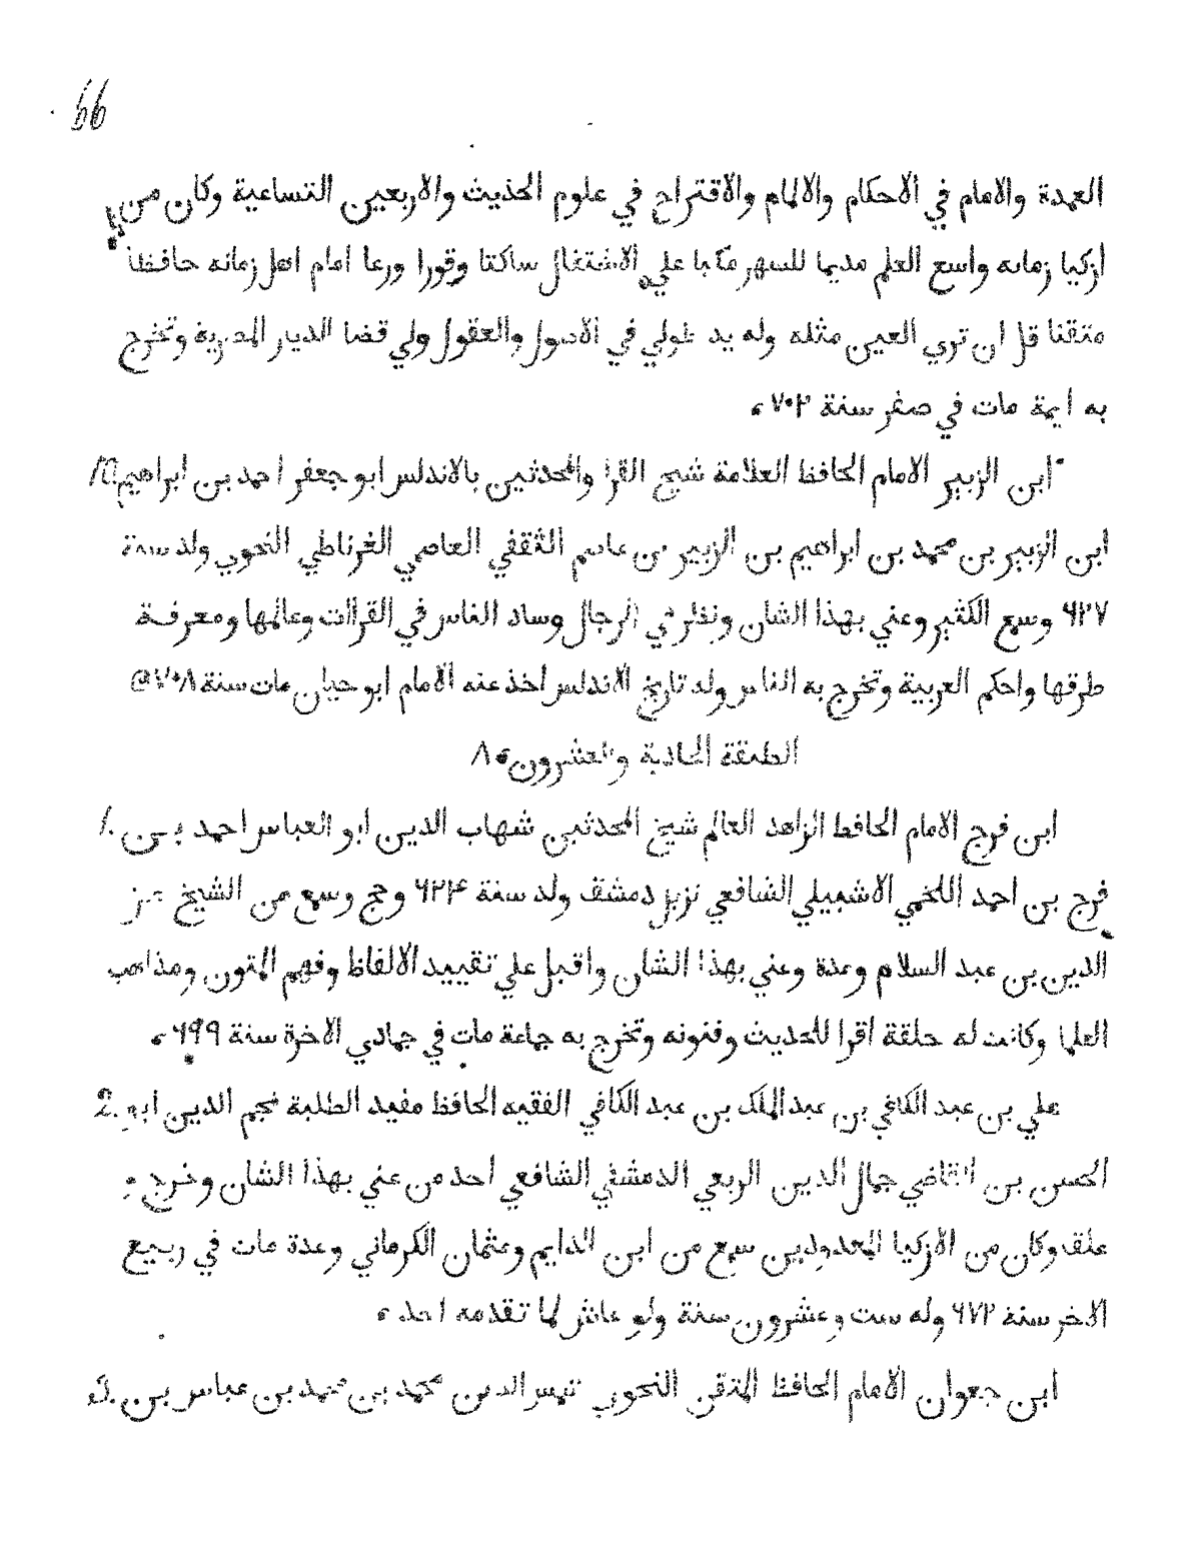 66
العمدة والامام في الاحكام والالمام والاقتراح في علوم الحذيث والاربعين التساعية وكان من
ازكيا زمانه واسع العلم مديما للسهر مكبا علي الاشتغال ساكتا وقورا ورعا امام اهل زمانه حافظا
متقنا قل ان تري العين مثله وله يد طولي في الاصول والعقول ولي قضا الديار المصرية وتخرج
به ايمة مات في صفر سنة ٧٠٢
ابن الزبير الامام الحافظ العلامة شيخ القرا والمحدثين بالاندلس ابو جعفر احمد بن ابراهيم
ابن الزبير بن محمد بن ابراهيم بن الزبير بن عاصم الثقفي العاصمي الغرناطي النحوي ولد سنة
٦٢٧ وسمع الكثير وعني بهذا الشان ونظر في الرجال وساد الناس في القراات وعالمها ومعرفة
طرقها واحكم العربية وتخرج به الناس ولد تاريخ الاندلس اخذ عنه الامام ابو حيان مات سنة ٧٠٨
الطبقة الحادية والعشرون ٨
ابن فرج الامام الحافظ الزاهد العالم شيخ المحدثين شهاب الدين ابو العباس احمد بن ١
فرج بن احمد اللخمي الاشبيلي الشافعي نزيل دمشق ولد سنة ٦٢٤ وحج وسمع من الشيخ عز
الدين بن عبد السلام وعدة وعني بهذا الشان واقبل علي تقييد الالفاظ وفهم المتون ومذاهب
العلما وكانت له حلقة اقرا للحديث وفنونه وتخرج به جماعة مات في جمادي الاخرة سنة ٦٩٩
علي بن عبد الكافي بن عبد الملك بن عبد الكافي الفقيه الحافظ مفيد الطلبة نجم الدين ابو 2
الحسن بن القاضي جمال الدين الربعي الدمشقي الشافعي احد من عني بهذا الشان وخرج و
علق وكان من الازكيا المعدودين سمع من ابن الدايم وعثمان الكرماني وعدة مات في ربيع
الاخر سنة ٦٧٢ وله ست وعشرون سنة ولو عاش لما تقدمه احد
ابن جعوان الامام الحافظ المتقن النحوي شمس الدين محمد بن محمد بن عباس بن